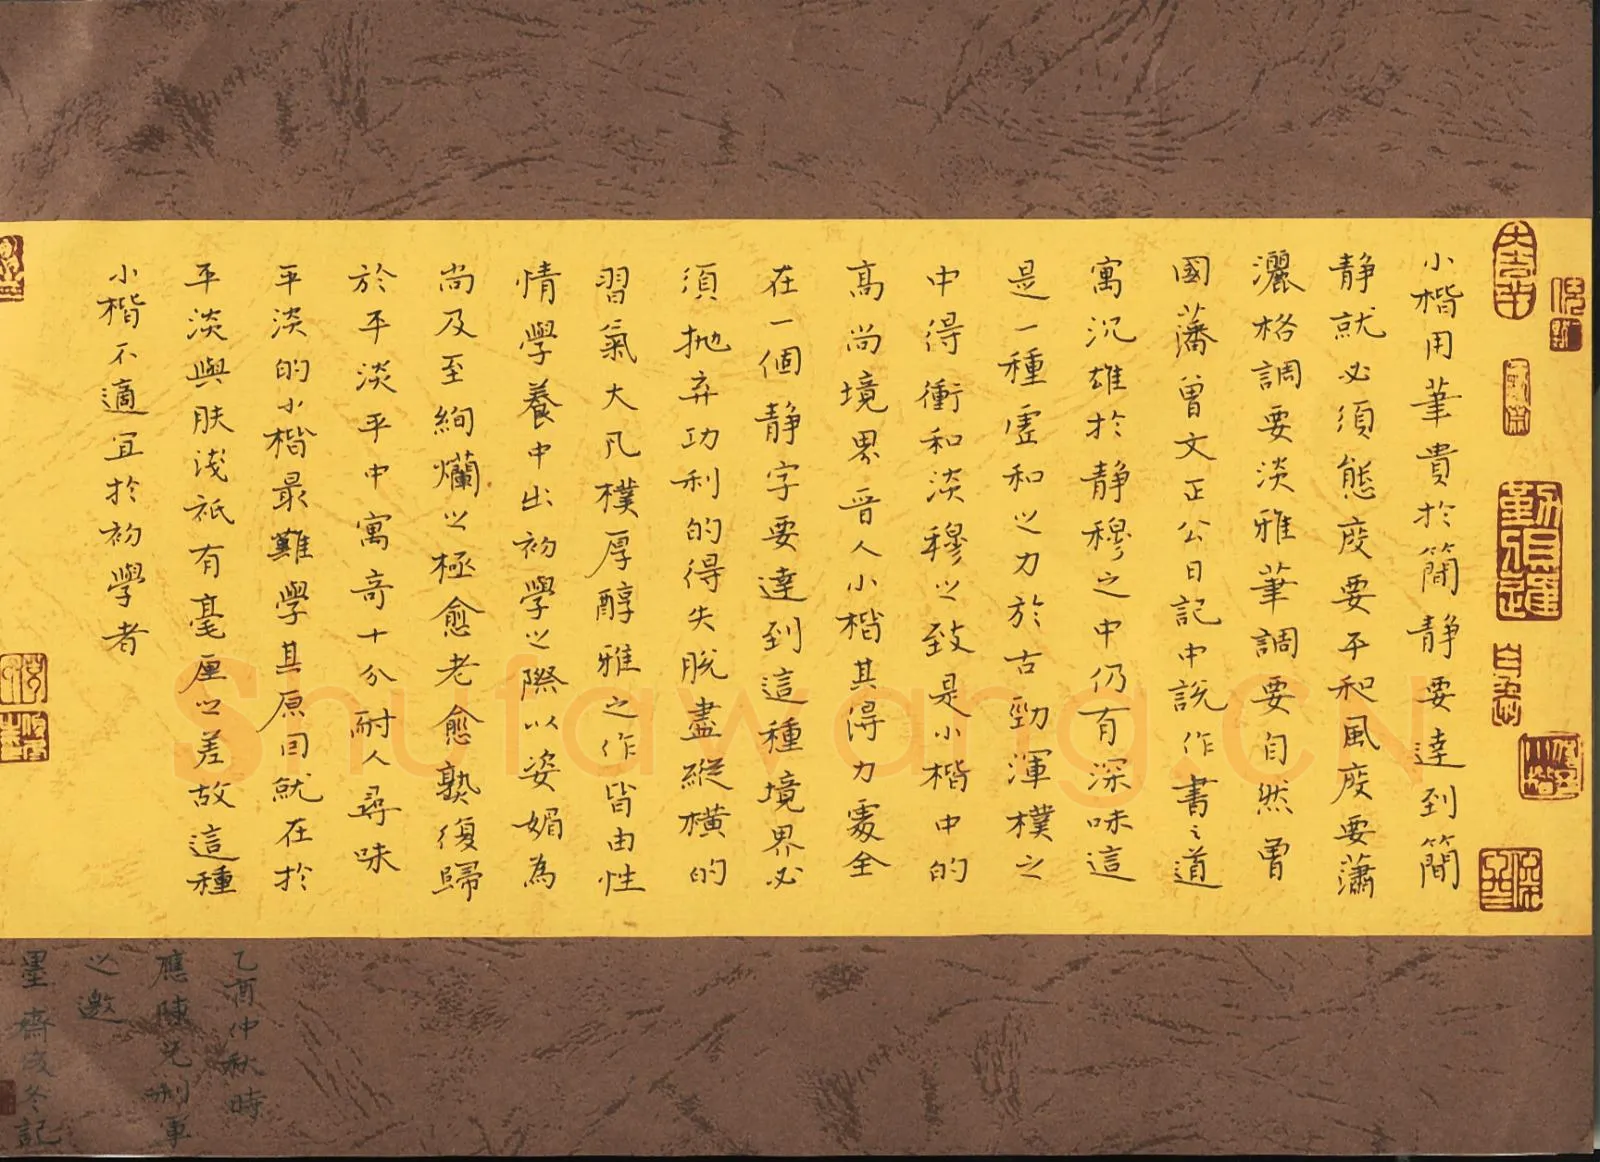 小楷用筆貴於簡静要達到簡
静就必須態度要平和風度要蕭
灑格調要淡雅筆調要自然曾
國藩曾文正公日記中說作書之道
寓沉雄於静穆之中仍有深味這
是一種虛和之力於古勁渾樸之
中得衝和淡穆之致是小楷中的
高尚境界晉人小楷其得力處全
在一個静字要達到這種境界必
須拋弃功利的得失脫盡縱橫的
習氣大凡樸厚醇雅之作皆由性
情學養中出初學之際以姿媚為
尚及至絢爛之極愈老愈熟復歸
於平淡平中寓奇十分耐人尋味
平淡的小楷最難學其原因就在於
平淡與膚淺祇有毫厘之差故這種
小楷不適宜於初學者
乙酉仲秋時
應陳兄制軍
之邀
墨齋成冬記
Shufawang.CN